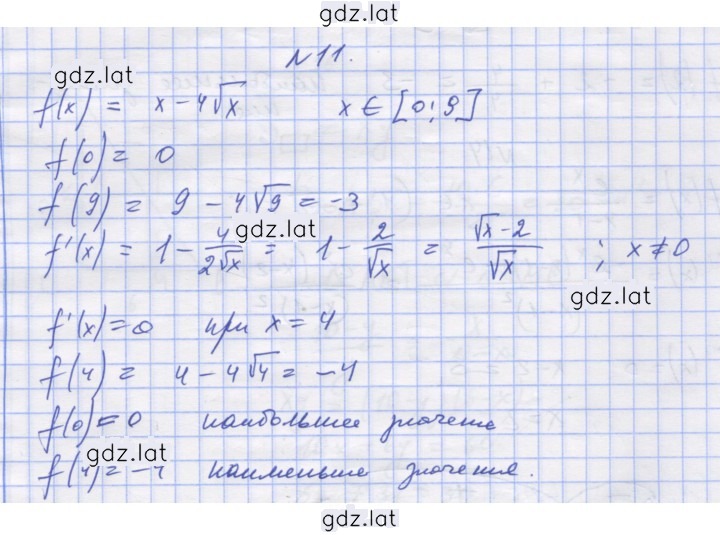 gdz.lat
№11.
gdz.lat
f(x) = x - 4√x   x ∈ [0; 9]
f(0) = 0
f(9) = 9 - 4√9 = -3
gdz.lat
f'(x) = 1 - 4/(2√x) = 1 - 2/√x = (√x - 2)/√x ; x ≠ 0
gdz.lat
f'(x) = 0 при x = 4
f(4) = 4 - 4√4 = -4
f(0) = 0 наибольшее значение
gdz.lat
f(4) = -4 наименьше значение.
gdz.lat